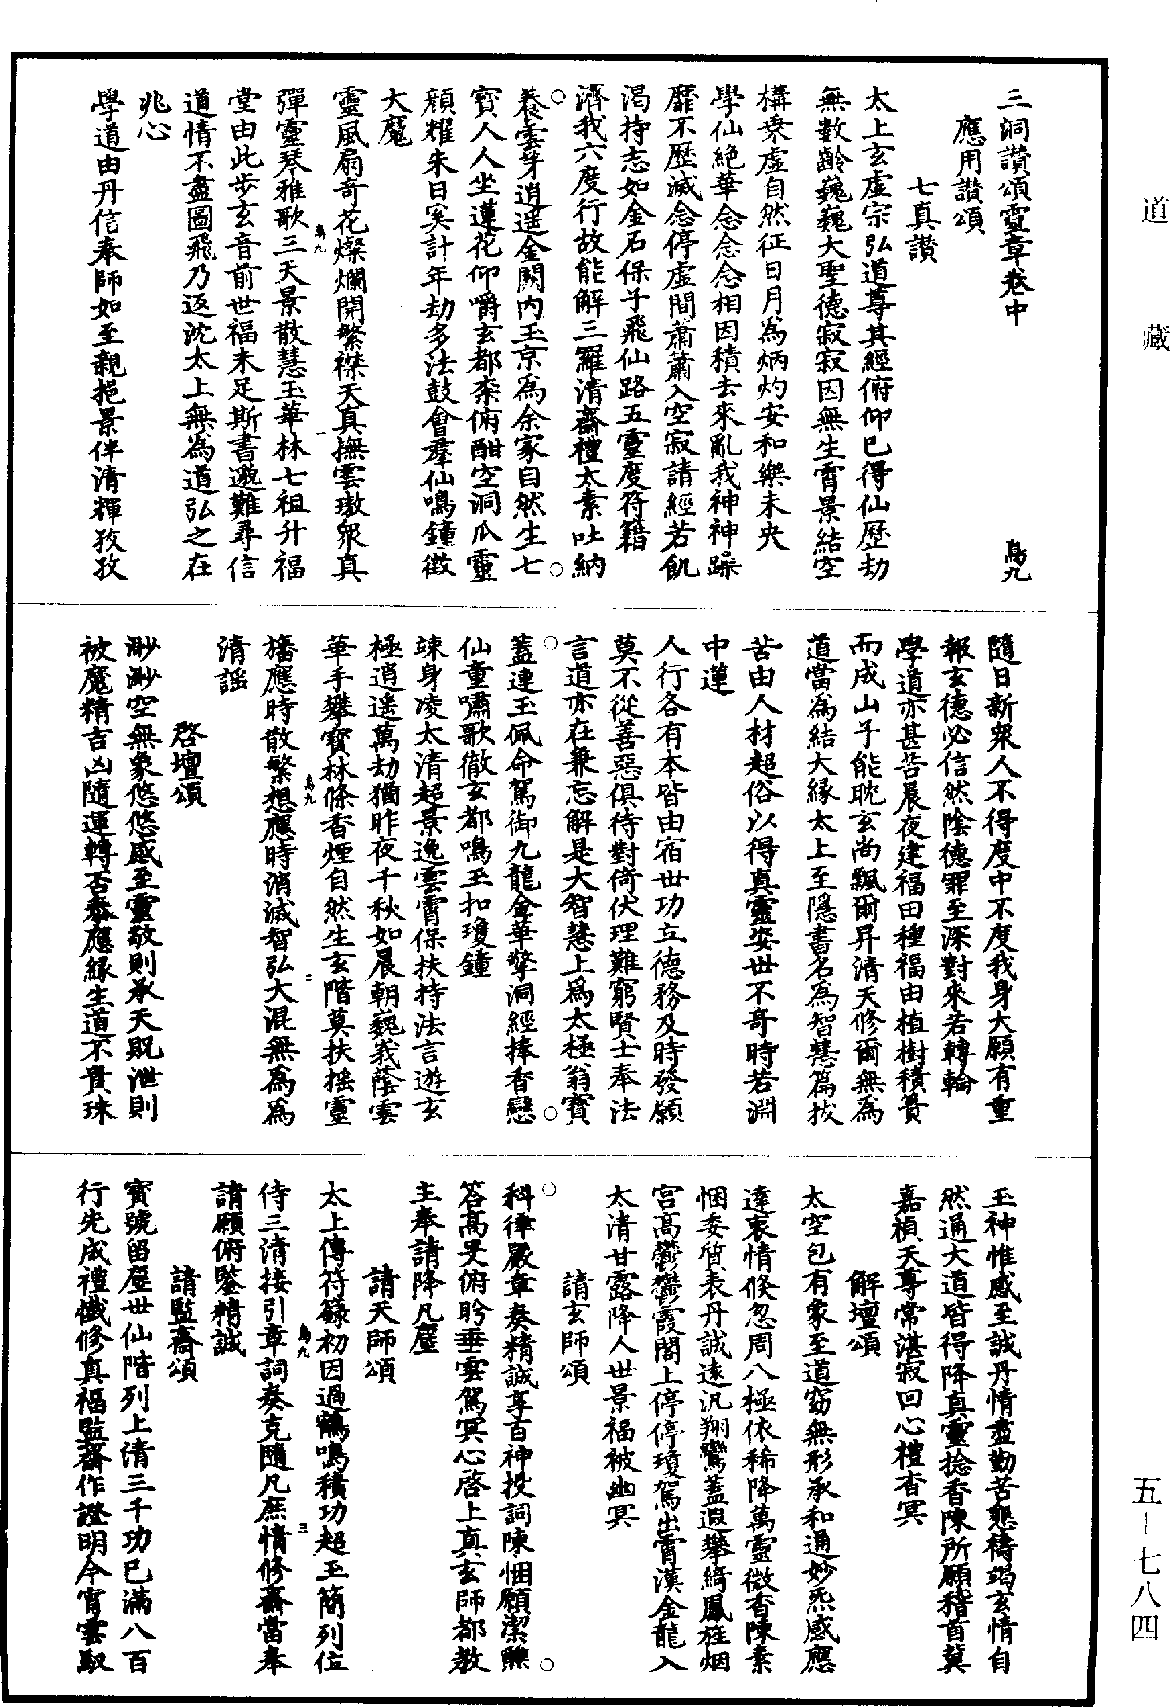 道藏
三洞讚頌靈章卷中
鳥九
應用讚頌
七真讚
太上玄虛宗弘道尊其經俯仰已得仙歷劫
無數齡巍巍大聖德寂寂因無生霄景結空
構乗虛自然征日月為炳灼安和樂未央
學仙絶華念念念相因積去來亂我神神躁
靡不歷滅念停虛間蕭蕭入空寂請經若飢
渴持志如金石保子飛仙路五靈度符籍
濟我六度行故能解三羅清齋禮太素吐納
養雲芽逍遥金闕内玉京為余家自然生七
寳人人坐蓮花仰嚼玄都柰俯酣空洞瓜靈
顔耀朱日奚計年劫多法鼓會羣仙鳴鐘徴
大魔
靈風扇奇花燦爛開繁襟天真撫雲璈衆真
彈靈琴雅歌三天景散慧玉華林七祖升福
堂由此步玄音前世福未足斯書邈難尋信
道情不盡圖飛乃返沈太上無為道弘之在
兆心
學道由丹信奉師如至親挹景伴清輝孜孜
隨日新衆人不得度中不度我身大願有重
報玄德必信然陰德罪至深對來若轉輪
學道亦甚苦晨夜建福田種福由植樹積簣
而成山子能耽玄尚飄爾昇清天修爾無為
道當為結大緣太上至隱書名為智慧篇拔
苦由人材超俗以得真靈姿世不奇時若淵
中蓮
人行各有本皆由宿世功立德務及時發願
莫不從善惡俱待對倚伏理難窮賢士奉法
言道亦在兼忘解是大智慧上為太極翁寳
蓋連玉佩命駕御九龍金華擎洞經捧香戀
仙童嘯歌徹玄都鳴玉扣瓊鐘
竦身凌太清超景逸雲霄保扶持法言遊玄
極逍遥萬劫猶昨夜千秋如晨朝巍峩蔭雲
華手攀寳林條香煙自然生玄階莫扶揺靈
旛應時散繁想應時消滅智弘大混無為為
清謡
啓壇頌
渺渺空無象悠悠感至靈敬則承天貺泄則
被魔精吉凶隨運轉否泰應緣生道不貴珠
玉神惟感至誠丹情盡勤苦懇禱竭玄情自
然通大道皆得降真靈捻香陳所願稽首冀
嘉禎天尊常湛寂回心禮杳冥
解壇頌
太空包有象至道窈無形承和通妙炁感應
達衷情倏忽周八極依稀降萬靈微香陳素
悃委質表丹誠遠汎翔鸞蓋遐攀綺鳳旌烟
宮高鬱鬱霞閣上停停瓊駕出霄漢金龍入
太清甘露降人世景福被幽冥
請玄師頌
科律嚴章奏精誠享百神投詞陳悃願潔醮
荅髙旻俯盻垂雲駕冥心啓上真玄師都教
主奉請降凡塵
請天師頌
太上傳符籙初因過鶴鳴積功超玉簡列位
侍三清接引章詞奏克隨凡庶情修齋當奉
請願俯鑒精誠
請監齋頌
寳號留塵世仙階列上清三千功已滿八百
行先成禮懺修真福監齋作證明今宵雲馭
鳥九 一
鳥九 二
鳥九 三
五—七八四